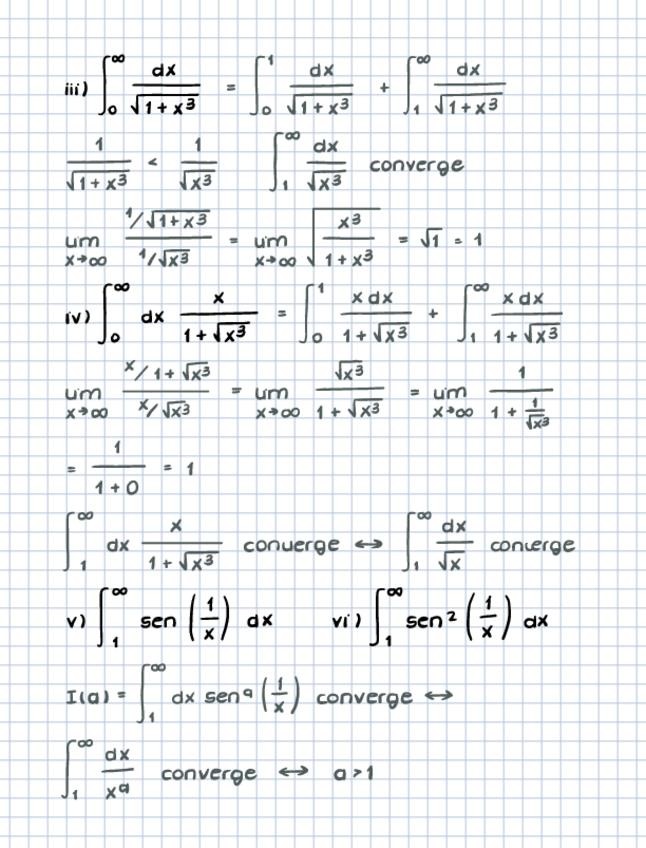 iii) ∫₀^∞ dx/√(1+x³) = ∫₀^1 dx/√(1+x³) + ∫₁^∞ dx/√(1+x³)
1/√(1+x³) < 1/√(x³) ∫₁^∞ dx/√(x³) converge
lim x→∞ (1/√(1+x³))/(1/√(x³)) = lim x→∞ √(x³/(1+x³)) = √1 = 1
iv) ∫₀^∞ dx x/(1+√(x³)) = ∫₀^1 x dx/(1+√(x³)) + ∫₁^∞ x dx/(1+√(x³))
lim x→∞ (x/1+√(x³))/(x/√(x³)) = lim x→∞ √(x³)/(1+√(x³)) = lim x→∞ 1/(1+1/√(x³))
= 1/(1+0) = 1
∫₁^∞ dx x/(1+√(x³)) converge ↔ ∫₁^∞ dx/√x converge
v) ∫₁^∞ sen (1/x) dx vi) ∫₁^∞ sen² (1/x) dx
I(a) = ∫₁^∞ dx senᵃ (1/x) converge ↔
∫₁^∞ dx/xᵃ converge ↔ a>1